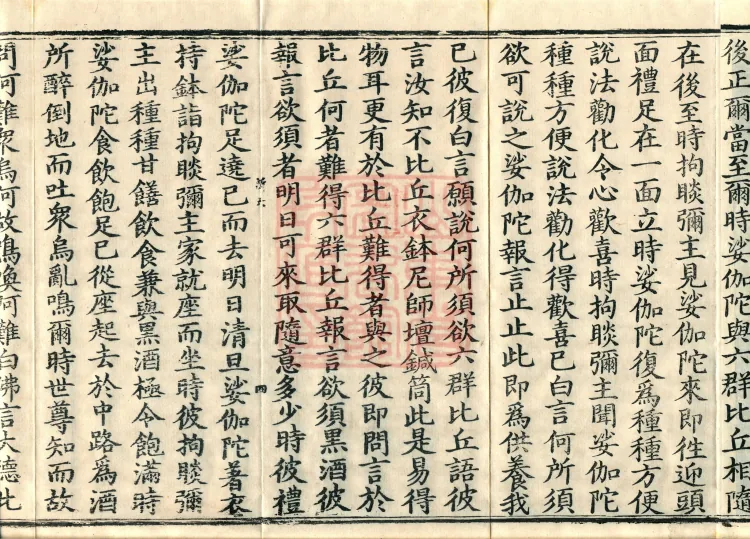 後正爾當至爾時娑伽陀與六群比丘相隨
在後至時拘睒彌主見娑伽陀來即徃迎頭
面禮足在一面立時娑伽陀復爲種種方便
說法勸化令心歡喜時拘睒彌主聞娑伽陀
種種方便說法勸化得歡喜已白言何所須
欲可說之娑伽陀報言止止此即爲供養我
已彼復白言願說何所須欲六群比丘語彼
言汝知不比丘衣鉢尼師壇鍼筒此是易得
物耳更有於比丘難得者與之彼即問言於
比丘何者難得六群比丘報言欲須黒酒彼
報言欲須者明日可來取隨意多少時彼禮
四
娑伽陀足遶已而去明日清旦娑伽陀著衣
持鉢詣拘睒彌主家就座而坐時彼拘睒彌
主出種種甘饍飲食兼與黒酒極令飽滿時
娑伽陀食飲飽足已從座起去於中路爲酒
所醉倒地而吐衆烏亂鳴爾時世尊知而故
問阿難衆烏何故鳴喚阿難白佛言大德此